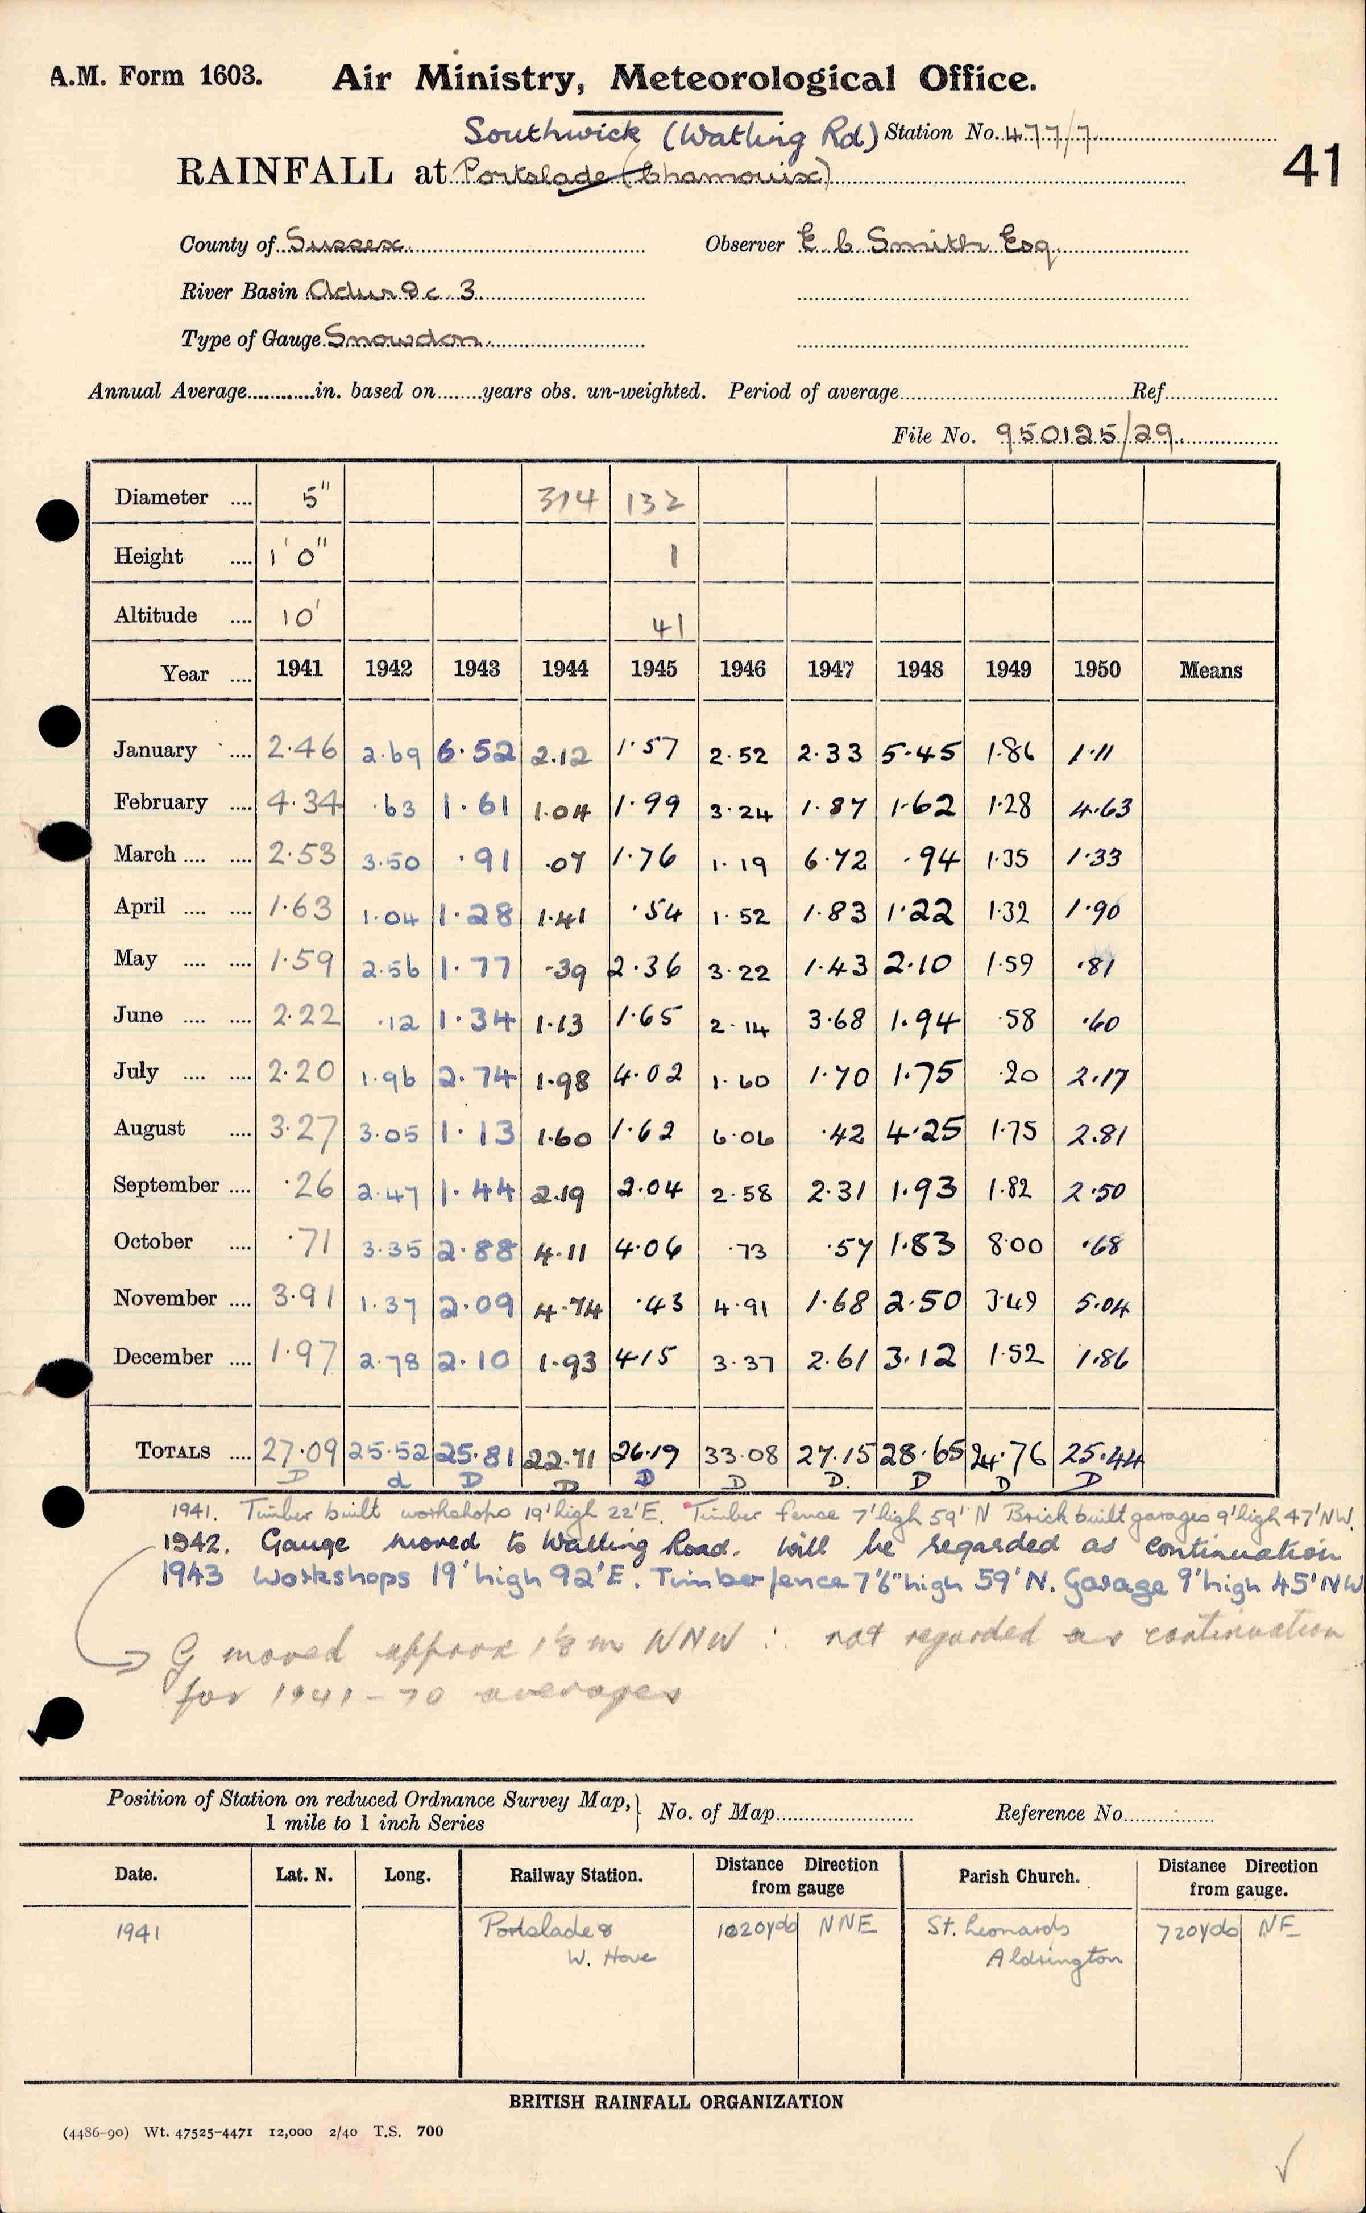 A.M. Form 1603. Air Ministry, Meteorological Office.
Southwick (Watling Rd) Station No. 477/7
RAINFALL at Portslade (Chamouix) 41
County of Sussex Observer E C Smith Esq
River Basin Adur &c 3
Type of Gauge Snowdon
Annual Average............in. based on........years obs. un-weighted. Period of average........................Ref....................
File No. 950125/29
Diameter .... 5" 314 132
Height .... 1' 0" 1
Altitude .... 10' 41
Year .... 1941 1942 1943 1944 1945 1946 1947 1948 1949 1950 Means
January .... 2.46 2.69 6.52 2.12 1.57 2.52 2.33 5.45 1.86 1.11
February .... 4.34 .63 1.61 1.04 1.99 3.24 1.87 1.62 1.28 4.63
March .... .... 2.53 3.50 .91 .07 1.76 1.19 6.72 .94 1.35 1.33
April .... .... 1.63 1.04 1.28 1.41 .54 1.52 1.83 1.22 1.32 1.90
May .... .... 1.59 2.56 1.77 .39 2.36 3.22 1.43 2.10 1.59 .81
June .... .... 2.22 .12 1.34 1.13 1.65 2.14 3.68 1.94 .58 .60
July .... .... 2.20 1.96 2.74 1.98 4.02 1.60 1.70 1.75 .20 2.17
August .... 3.27 3.05 1.13 1.60 1.62 6.06 .42 4.25 1.75 2.81
September .... .26 2.47 1.44 2.19 2.04 2.58 2.31 1.93 1.82 2.50
October .... .71 3.35 2.88 4.11 4.06 .73 .57 1.83 8.00 .68
November .... 3.91 1.37 2.09 4.74 .43 4.91 1.68 2.50 3.49 5.04
December .... 1.97 2.78 2.10 1.93 4.15 3.37 2.61 3.12 1.52 1.86
TOTALS .... 27.09 25.52 25.81 22.71 26.19 33.08 27.15 28.65 24.76 25.44
D d D D D D D. D D D
1941. Timber built workshops 19' high 22' E. Timber fence 7' high 59' N Brick built garages 9' high 47' NW.
1942. Gauge moved to Watling Road. Will be regarded as continuation
1943 Workshops 19' high 92' E. Timber fence 7'6" high 59' N. Garage 9' high 45' NW
G moved approx 1⅛ m WNW ∴ not regarded as continuation
for 1941-70 averages
Position of Station on reduced Ordnance Survey Map,
1 mile to 1 inch Series } No. of Map.................... Reference No.............
Date. Lat. N. Long. Railway Station. Distance Direction from gauge Parish Church. Distance Direction from gauge.
1941 Portslade & 1020yds NNE St. Leonards 720yds NE
W. Hove Aldrington
BRITISH RAINFALL ORGANIZATION
(4486-90) Wt. 47525-4471 12,000 2/40 T.S. 700